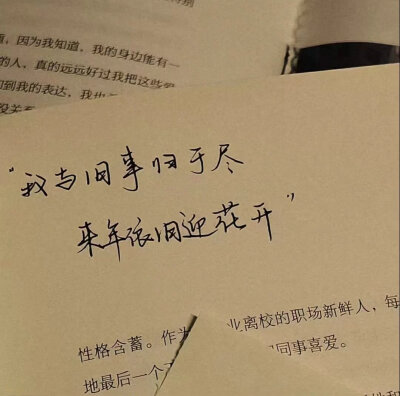 ，因为我知道，我的身边能有一
的人，真的远远好过我把这些
到我的表达，我也
“我与旧事归于尽
来年依旧迎花开”
业离校的职场新鲜人，每
性格含蓄。作为
同事喜爱。
地最后一个